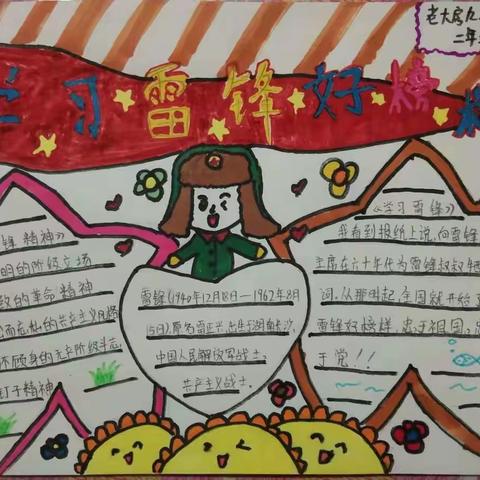 学习雷锋好榜样
老大房九
二年
锋精神》
明的阶级立场
致的革命精神
而忘私的共产主义风格
不顾身的无产阶级斗志
钉子精神
雷锋(1940年12月18日—1962年8月
15日),原名雷正兴,出生于湖南长沙,
中国人民解放军战士,
共产主义战士。
《学习雷锋》
我看到报纸上说,向雷锋
主席在六十年代为雷锋叔叔
词,从那时起,全国就开始了
雷锋好榜样,忠于祖国,忠
于党!!